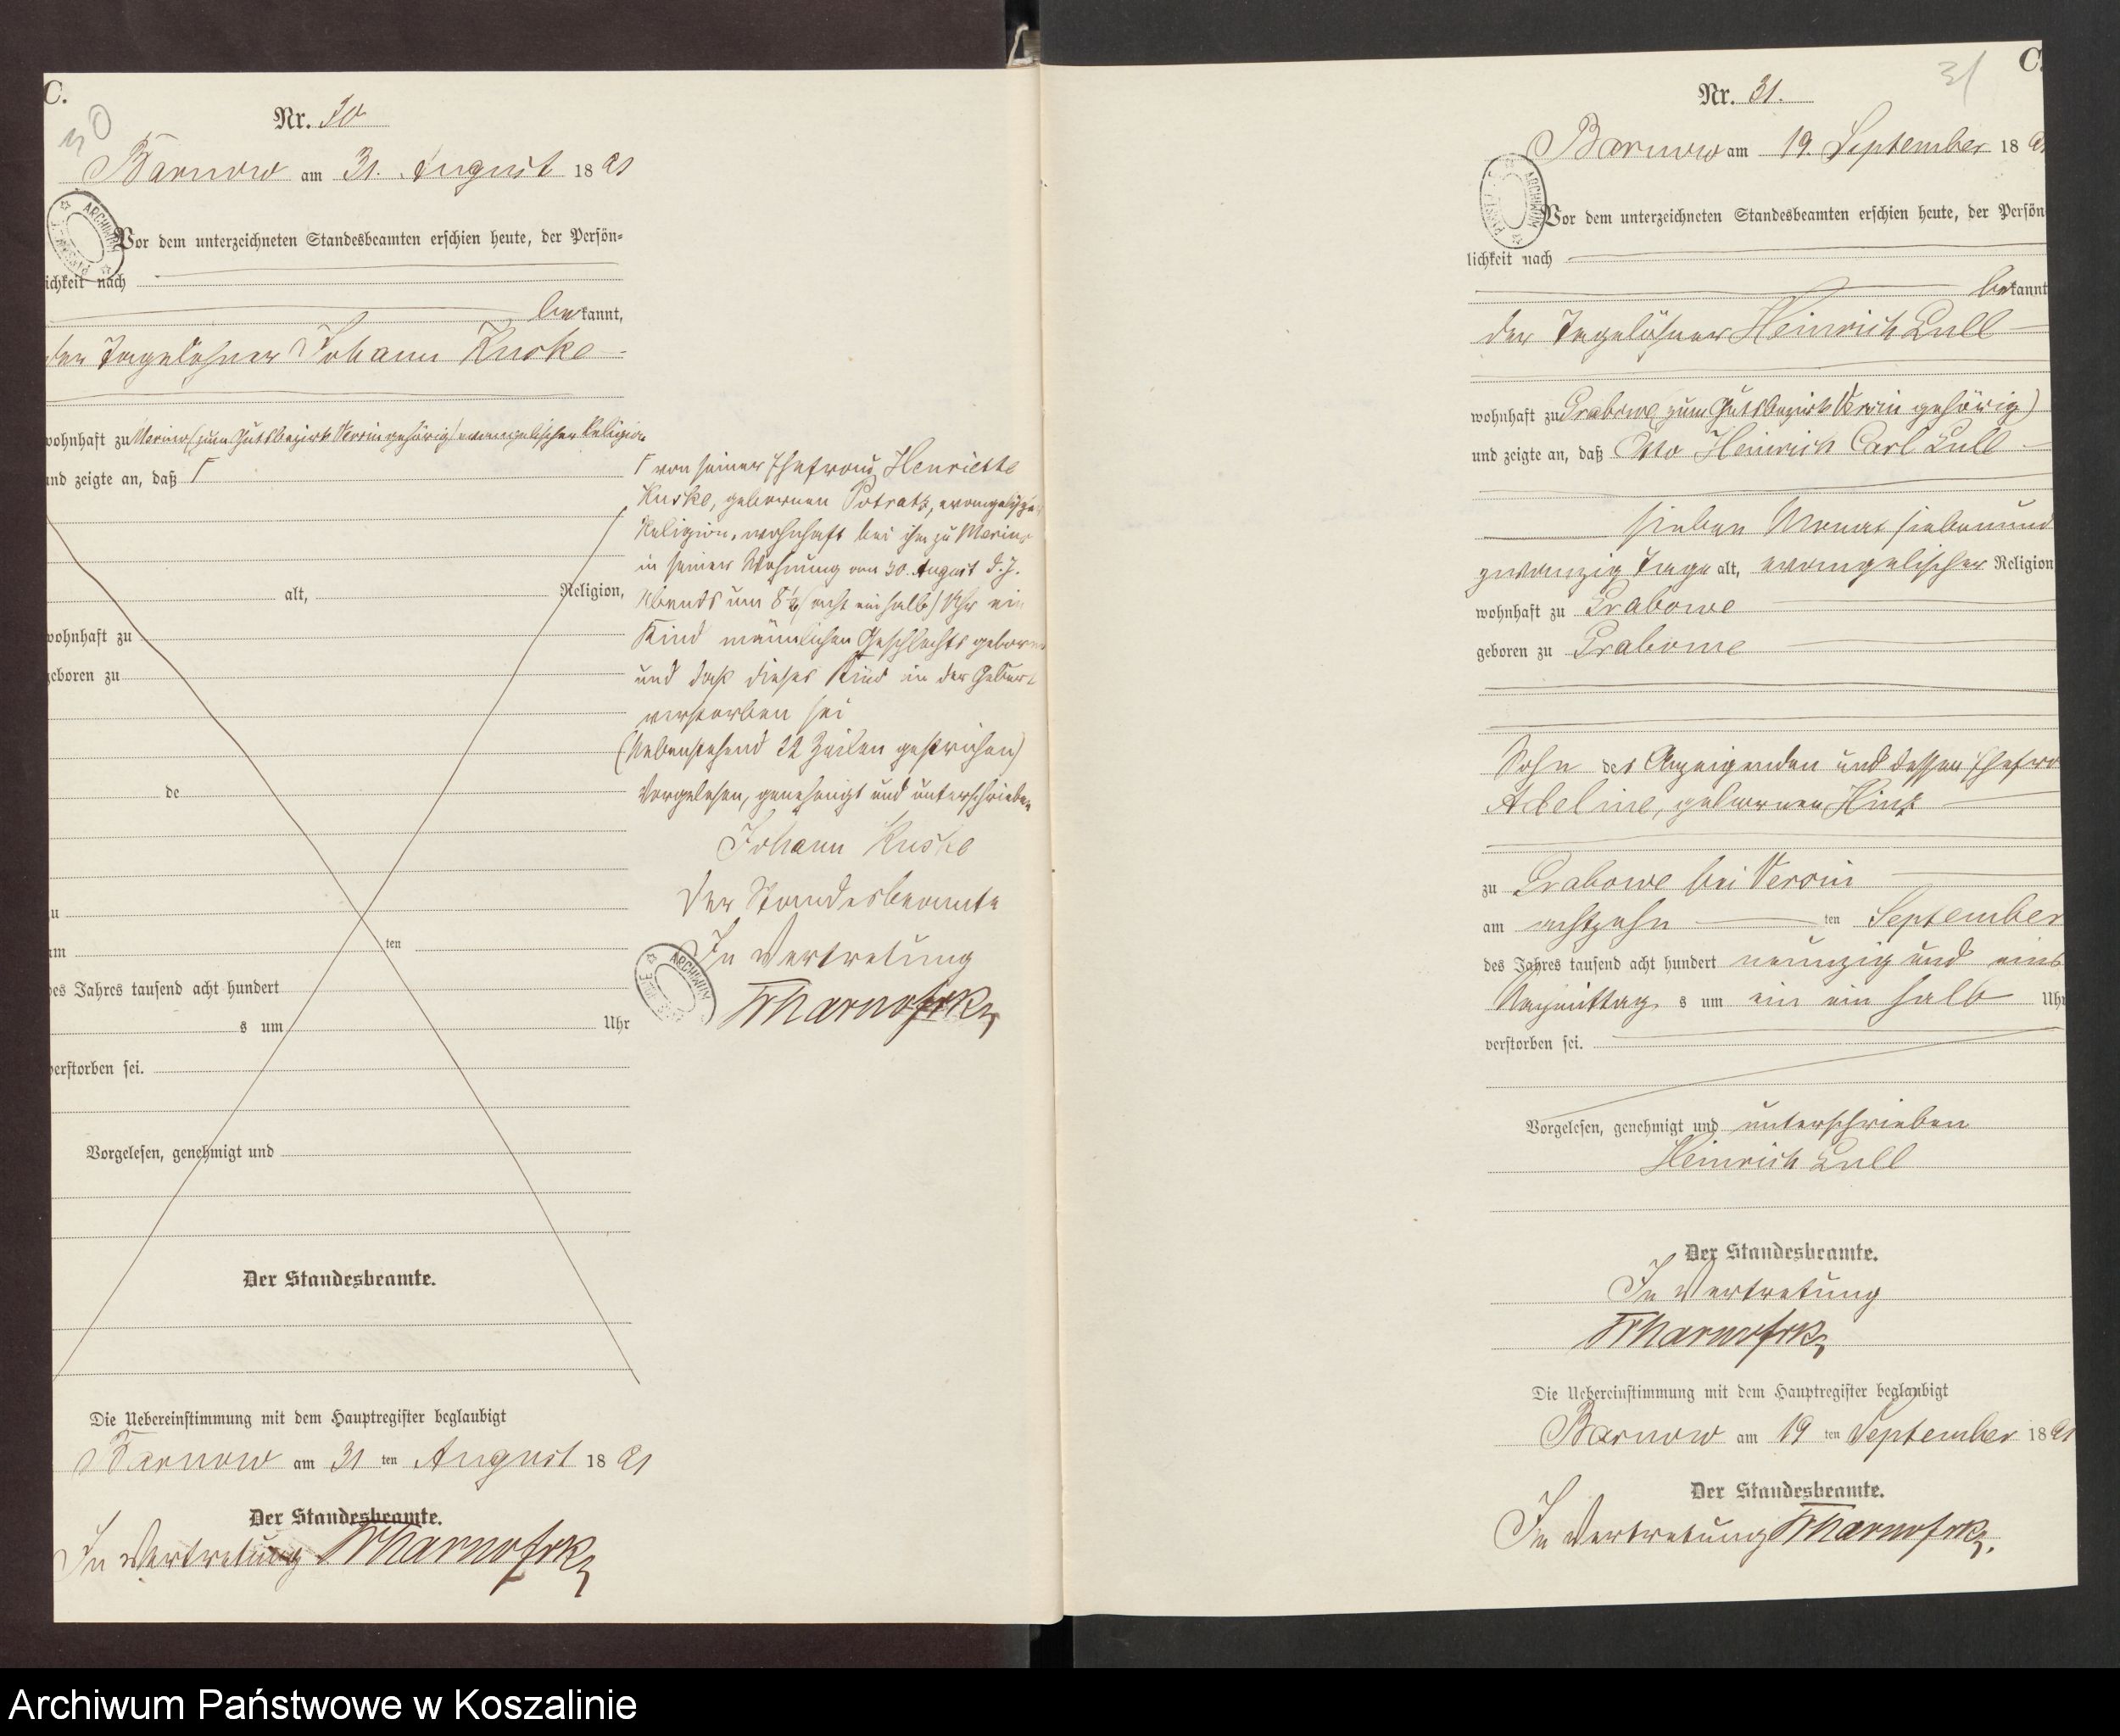 C.
30
Nr. 30
Barnow am 31. August 1891
Vor dem unterzeichneten Standesbeamten erschien heute, der Persön-
lichkeit nach
bekannt,
der Tagelöhner Johann Kuske
wohnhaft zu (zum Gutsbezirk Versin gehörig) evangelischer Religion
und zeigte an, daß Γ
alt, Religion,
wohnhaft zu
geboren zu
de
zu
am ten
des Jahres tausend acht hundert
s um Uhr
verstorben sei.
Vorgelesen, genehmigt und
Der Standesbeamte.
Die Uebereinstimmung mit dem Hauptregister beglaubigt
Barnow am 31 ten August 1891
Der Standesbeamte.
In Vertretung
Γ von seiner Ehefrau, Henriette
Kuske, gebornen Potratz, evangelischer
Religion, wohnhaft bei ihm zu
in seiner Wohnung am 30. August d. J.
Abends um 8½ (acht ein halb) Uhr ein
Kind männlichen Geschlechts geboren
und daß dieses Kind in der Geburt
verstorben sei
(Nebenstehend 22 Zeilen gestrichen)
Vorgelesen, genehmigt und unterschrieben
Johann Kuske
Der Standesbeamte
In Vertretung
ARCHIWUM
C.
31
Nr. 31.
Barnow am 19. September 1891
Vor dem unterzeichneten Standesbeamten erschien heute, der Persön
lichkeit nach
bekannt
der Tagelöhner Heinrich Lull
wohnhaft zu Grabowe (zum Gutsbezirk Versin gehörig)
und zeigte an, daß Otto Heinrich Carl Lull
sieben Monat siebenund
zwanzig Tage alt, evangelischer Religion
wohnhaft zu Grabowe
geboren zu Grabowe
Sohn des Anzeigenden und dessen Ehefrau
Adeline, gebornen
zu Grabowe bei Versin
am achtzehn ten September
des Jahres tausend acht hundert neunzig und eins
Nachmittag s um ein ein halb Uhr
verstorben sei.
Vorgelesen, genehmigt und unterschrieben
Heinrich Lull
Der Standesbeamte.
In Vertretung
Die Uebereinstimmung mit dem Hauptregister beglaubigt
Barnow am 19 ten September 1891
Der Standesbeamte.
In Vertretung
Archiwum Państwowe w Koszalinie